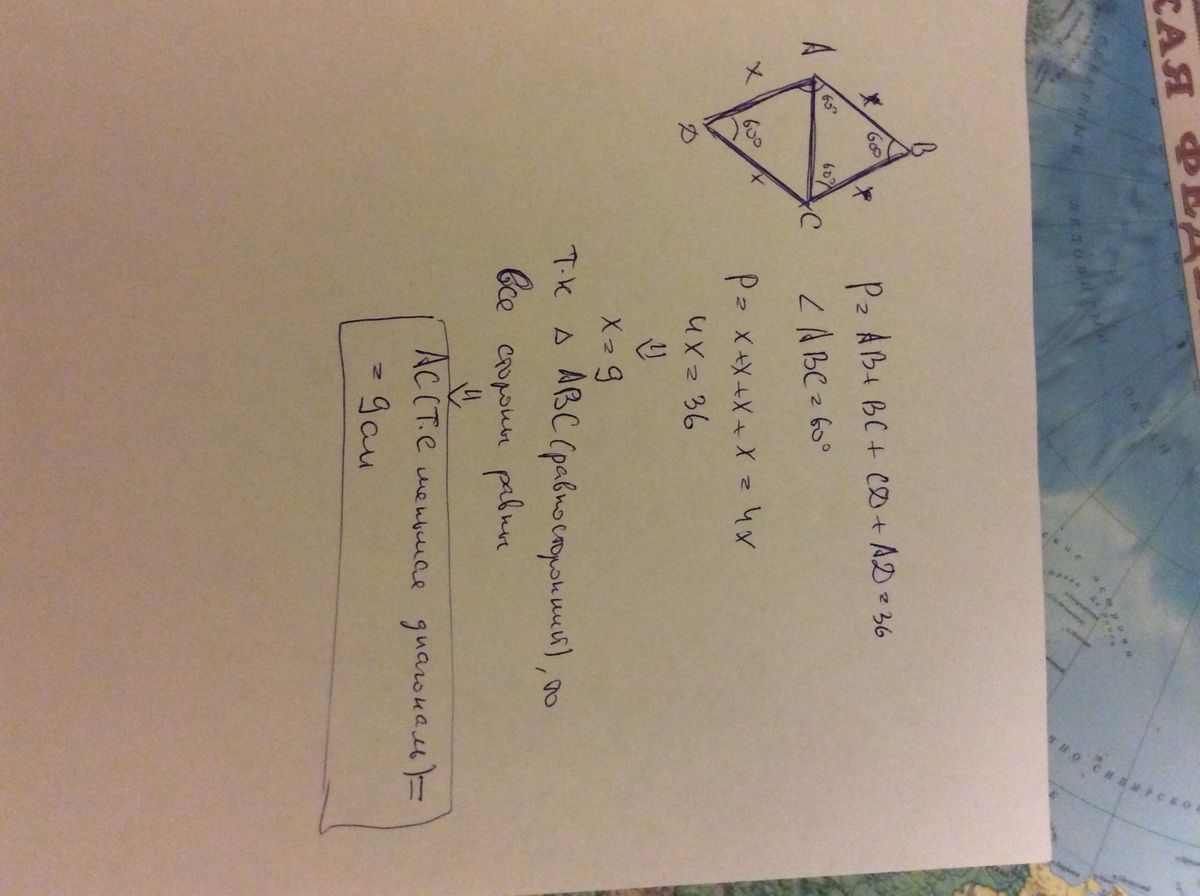 A
B
C
D
x
x
x
x
60°
60°
60°
60°
P = AB + BC + CD + AD = 36
∠ ABC = 60°
P = x + x + x + x = 4x
4x = 36
⇓
x = 9
Т.к △ ABC (равносторонний), то
все стороны равны
⇓
AC (т.е меньшая диагональ) =
= 9 см
САЯ ФЕДЕ
ОКЕАН
ОЧНО-СИБИРСКО